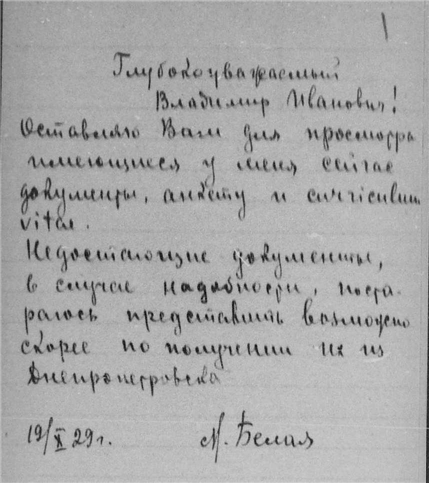 1
Глубокоуважаемый
Владимир Иванович!
Оставляю Вам для просмотра
имеющиеся у меня сейчас
документы, анкету и curriculum
vitae.
Недостающие документы,
в случае надобности, поста-
раюсь представить возможно
скорее по получении их из
Днепропетровска
19/X 29 г. М. Белая